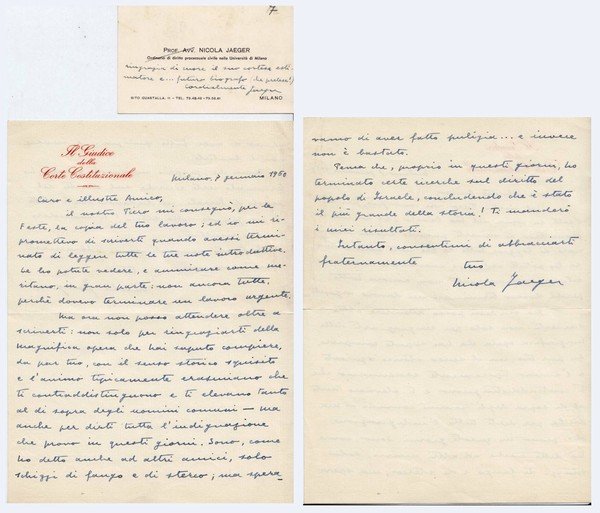 7
PROF. AVV. NICOLA JAEGER
Ordinario di diritto processuale civile nella Università di Milano
ringrazia di cuore il suo cortese esti-
matore e... futuro biografo (che pretese!)
Cordialmente Jaeger
VITO GUASTALLA, 11 - TEL. 79.48.46 - 79.36.61 MILANO
Il Giudice
della
Corte Costituzionale
Milano, 7 gennaio 1960
Caro e illustre Amico,
il nostro Piero mi consegnò, per le
Feste, la copia del tuo lavoro; ed io mi ri-
promettevo di scriverti quando avessi termi-
nato di leggere tutte le tue note introduttive.
Le ho potute vedere, e ammirare come me-
ritano, in gran parte: non ancora tutte,
perchè dovevo terminare un lavoro urgente.
Ma ora non posso attendere oltre a
scriverti: non solo per ringraziarti della
magnifica opera che hai saputo compiere,
da par tuo, con il senso storico squisito
e l'animo tipicamente erasmiano che
ti contraddistinguono e ti elevano tanto
al di sopra degli uomini comuni — ma
anche per dirti tutta l'indignazione
che provo in questi giorni. Sono, come
ho detto anche ad altri amici, solo
schizzi di fango e di sterco; ma spera-
vamo di aver fatto pulizia... e invece
non è bastato.
Pensa che, proprio in questi giorni, ho
terminato certe ricerche sul diritto del
popolo di Israele, concludendo che è stato
il più grande della storia! Ti manderò
i miei risultati.
Intanto, consentimi di abbracciarti
fraternamente tuo
Nicola Jaeger